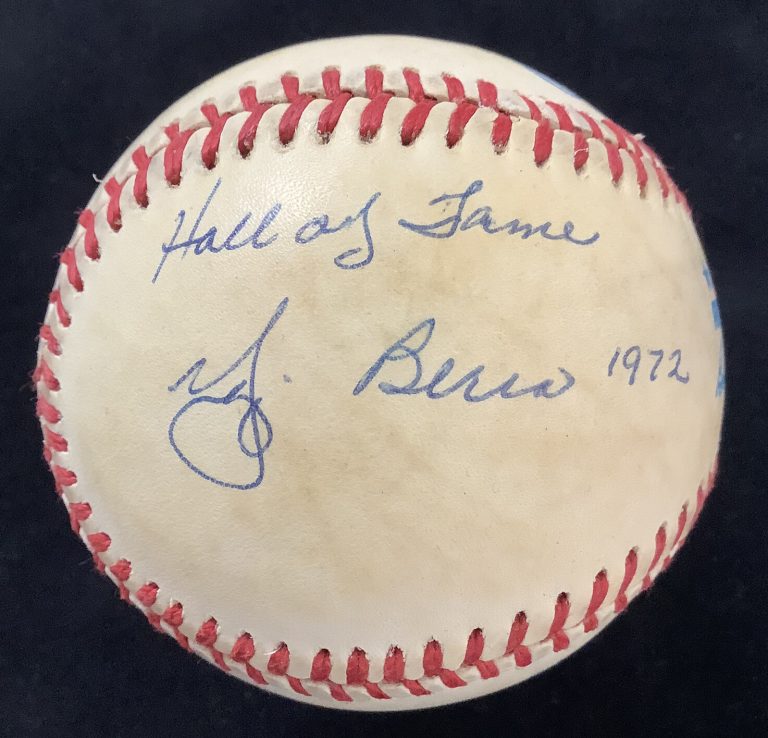 Hall of Fame
Yogi Berra 1972